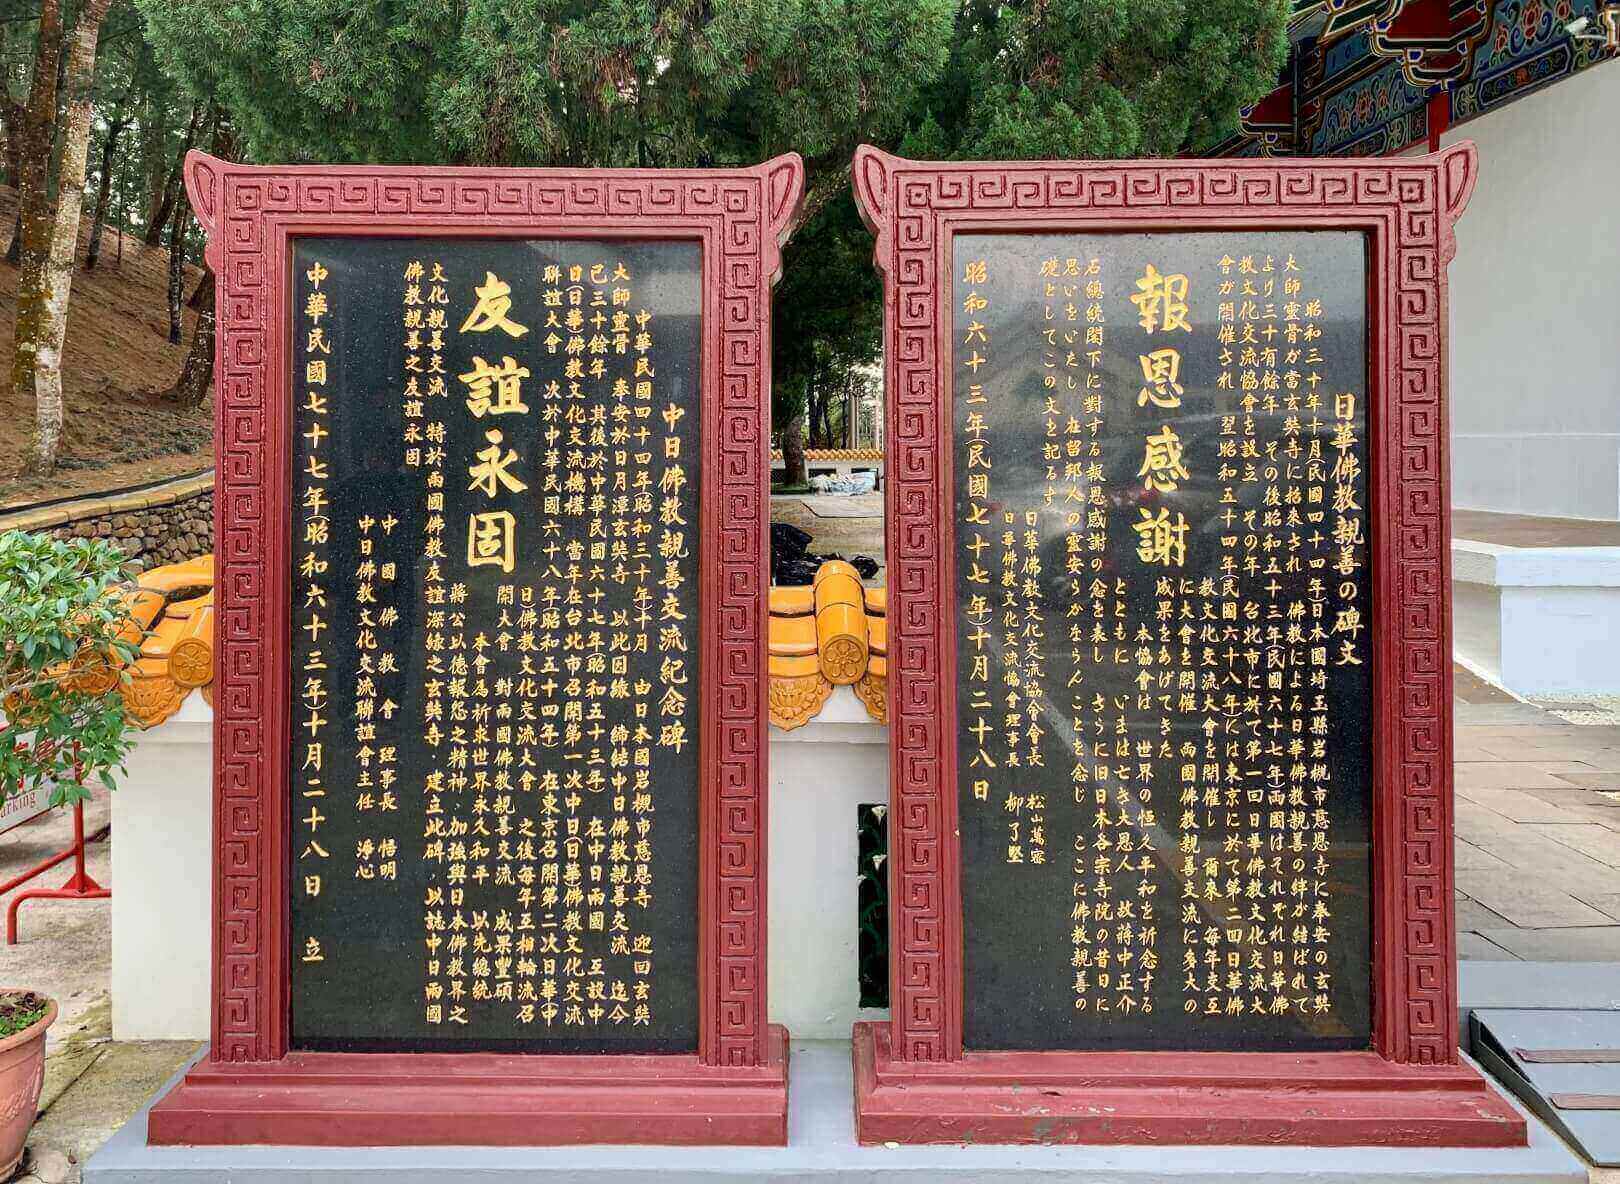 日華佛教親善の碑文
昭和三十年十月(民國四十四年)日本國埼玉縣岩槻市慈恩寺に奉安の玄奘
大師靈骨が當玄奘寺に招来され 佛教による日華佛教親善の絆が結ばれて
より三十有餘年 その後昭和五十三年(民國六十七年)両國はそれぞれ日華佛
教文化交流協會を設立 その年 台北市に於て第一回日華佛教文化交流大
會が開催され 翌昭和五十四年(民國六十八年)には東京に於て第二回日華佛
教文化交流大會を開催し 爾來 毎年交互
に大會を開催 両國佛教親善交流に多大の
成果をあげてきた
報恩感謝
本協會は 世界の恒久平和を祈念する
とともに いまは亡き大恩人 故蔣中正介
石總統閣下に對する報恩感謝の念を表し さらに旧日本各宗寺院の昔日に
思いをいたし 在留邦人の靈安らかならんことを念じ ここに佛教親善の
礎としてこの文を記るす
日華佛教文化交流協會會長 松山萬密
日華佛教文化交流協會理事長 柳了堅
昭和六十三年(民國七十七年)十月二十八日
中日佛教親善交流紀念碑
中華民國四十四年(昭和三十年)十月 由日本國岩槻市慈恩寺 迎回玄奘
大師靈骨 奉安於日月潭玄奘寺 以此因緣 締結中日佛教親善交流 迄今
已三十餘年 其後於中華民國六十七年(昭和五十三年) 在中日兩國 互設中
日(日華)佛教文化交流機構 當年在台北市召開第一次中日(日華)佛教文化交流
聯誼大會 次於中華民國六十八年(昭和五十四年) 在東京召開第二次日華(中
日)佛教文化交流大會 之後每年互相輪流召
開大會 對兩國佛教親善交流 成果豐碩
友誼永固
本會為祈求世界永久和平 以先總統
蔣公以德報怨之精神、加強與日本佛教界之
文化親善交流 特於兩國佛教友誼深緣之玄奘寺、建立此碑、以誌中日兩國
佛教親善之友誼永固
中國佛教會理事長 悟明
中日佛教文化交流聯誼會主任 淨心
中華民國七十七年(昭和六十三年)十月二十八日 立
arking